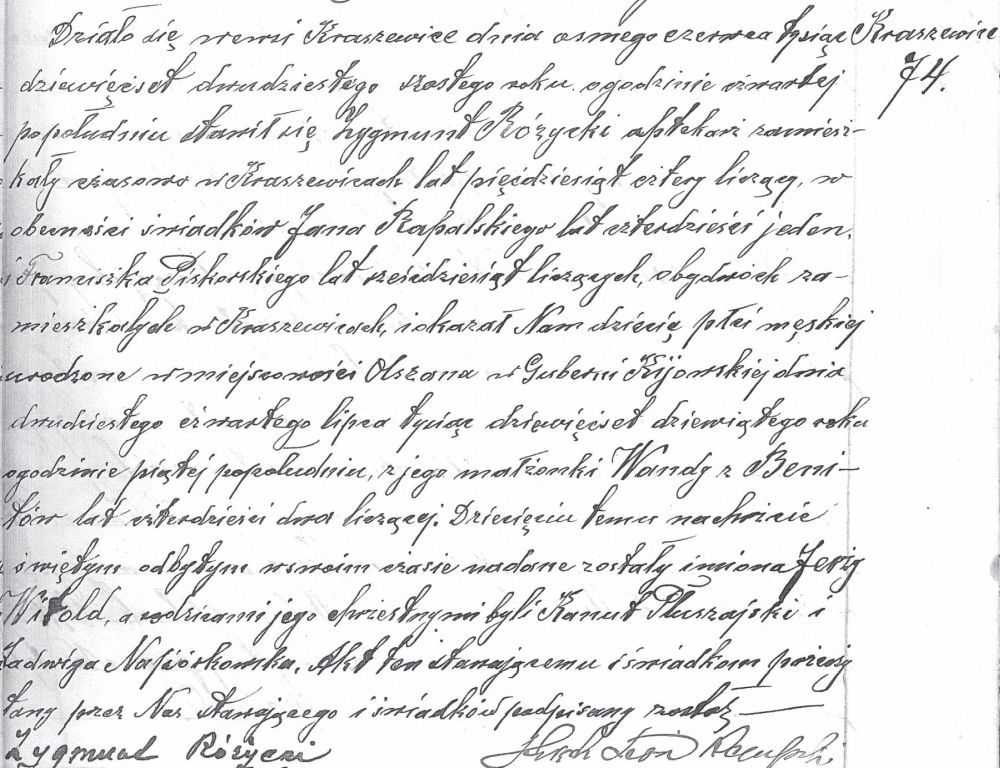 Działo się wewsi Kraszewice dnia osmego czerwca tysiąc Kraszewice
dziewięćset dwudziestego szostego roku ogodzinie czwartej 74.
popołudniu stawił się Zygmunt Różycki aptekarz zamiesz-
kały czasowo w Kraszewicach lat pięćdziesiąt cztery liczący, w
obecności świadków Jana Kapalskiego lat czterdzieści jeden,
i Franciszka Piskorskiego lat sześćdziesiąt liczących, obydwóch za-
mieszkałych w Kraszewicach, i okazał Nam dziecię płci męskiej
urodzone w miejscowości Olszana w Guberni Kijowskiej dnia
dwudziestego czwartego lipca tysiąc dziewięćset dziewiątego roku
ogodzinie piątej popołudniu, z jego małżonki Wandy z Beni-
tów lat czterdzieści dwa liczącej. Dziecięciu temu nachrzcie
świętym odbytym wswoim czasie nadane zostały imiona Jerzy
Witold, a rodzicami jego chrzestnymi byli Kanut Pluszajski i
Jadwiga Napiórkowska. Akt ten stawającemu i świadkom przeczy
tany przez Nas stawającego i świadków podpisany został
Zygmund Różycki